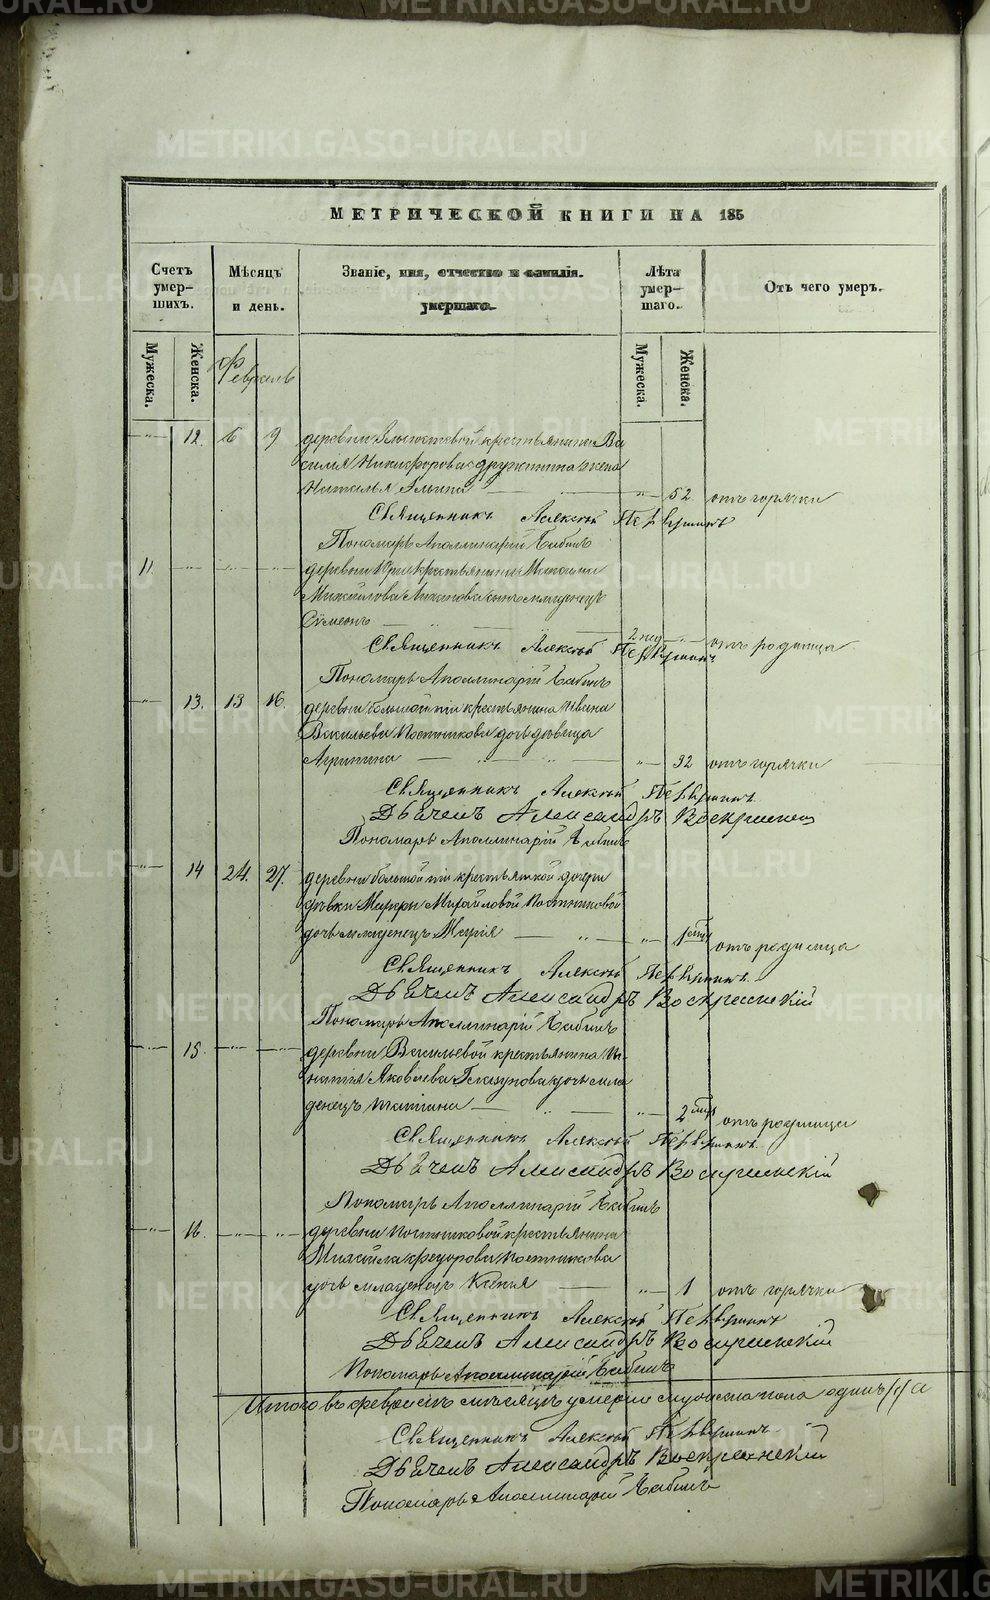 МЕТРИЧЕСКОЙ КНИГИ НА 185
Счетъ умер-шихъ.
Мѣсяцъ и день.
Званіе, имя, отчество и фамилія умершаго.
Лѣта умер-шаго.
Отъ чего умеръ.
Мужеска. Женска. Мужеска. Женска.
Февраль
12. 6 9 деревни крестьянина Ва
силія Никифорова Дружинина жена
Наталья Ильина 52 отъ горячки
Священникъ Алексѣй
Пономарь Аполлинарій Бабинъ
11 деревни крестьянина
Михайлова сынъ младенецъ
Сѵмеонъ 2 нед отъ родимца
Священникъ Алексѣй
Пономарь Аполлинарій Бабинъ
13. 13 16. деревни большой крестьянина Ивана
Васильева Постникова дочь дѣвица
Агрипина 32 отъ горячки
Священникъ Алексѣй
Дьяченъ Александръ Воскресенск
Пономарь Аполлинарій Бабинъ
14 24. 27. деревни большой крестьянской дочери
дѣвки Михайловой Постниковой
дочь младенецъ Марія 1 отъ родимца
Священникъ Алексѣй
Дьяченъ Александръ Воскресенскій
Пономарь Аполлинарій Бабинъ
15. деревни Васильевой крестьянина Иг
натія Яковлева дочь мла
денецъ Татіана 2 отъ родимца
Священникъ Алексѣй
Дьяченъ Александръ Воскресенскій
Пономарь Аполлинарій Бабинъ
16. деревни Постниковой крестьянина
Михаила Федорова Постникова
дочь младенецъ Ксенія 1 отъ горячки
Священникъ Алексѣй
Дьяченъ Александръ Воскресенскій
Пономарь Аполлинарій Бабинъ
Итого въ февралѣ мѣсяцѣ умерло мужеска пола одинъ
Священникъ Алексѣй
Дьяченъ Александръ Воскресенскій
Пономарь Аполлинарій Бабинъ
METRIKI.GASO-URAL.RU